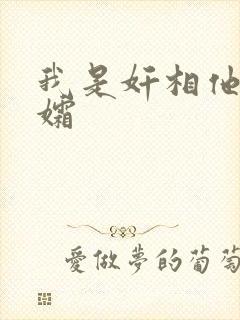 我是奸相他
孀
愛做夢的葡萄